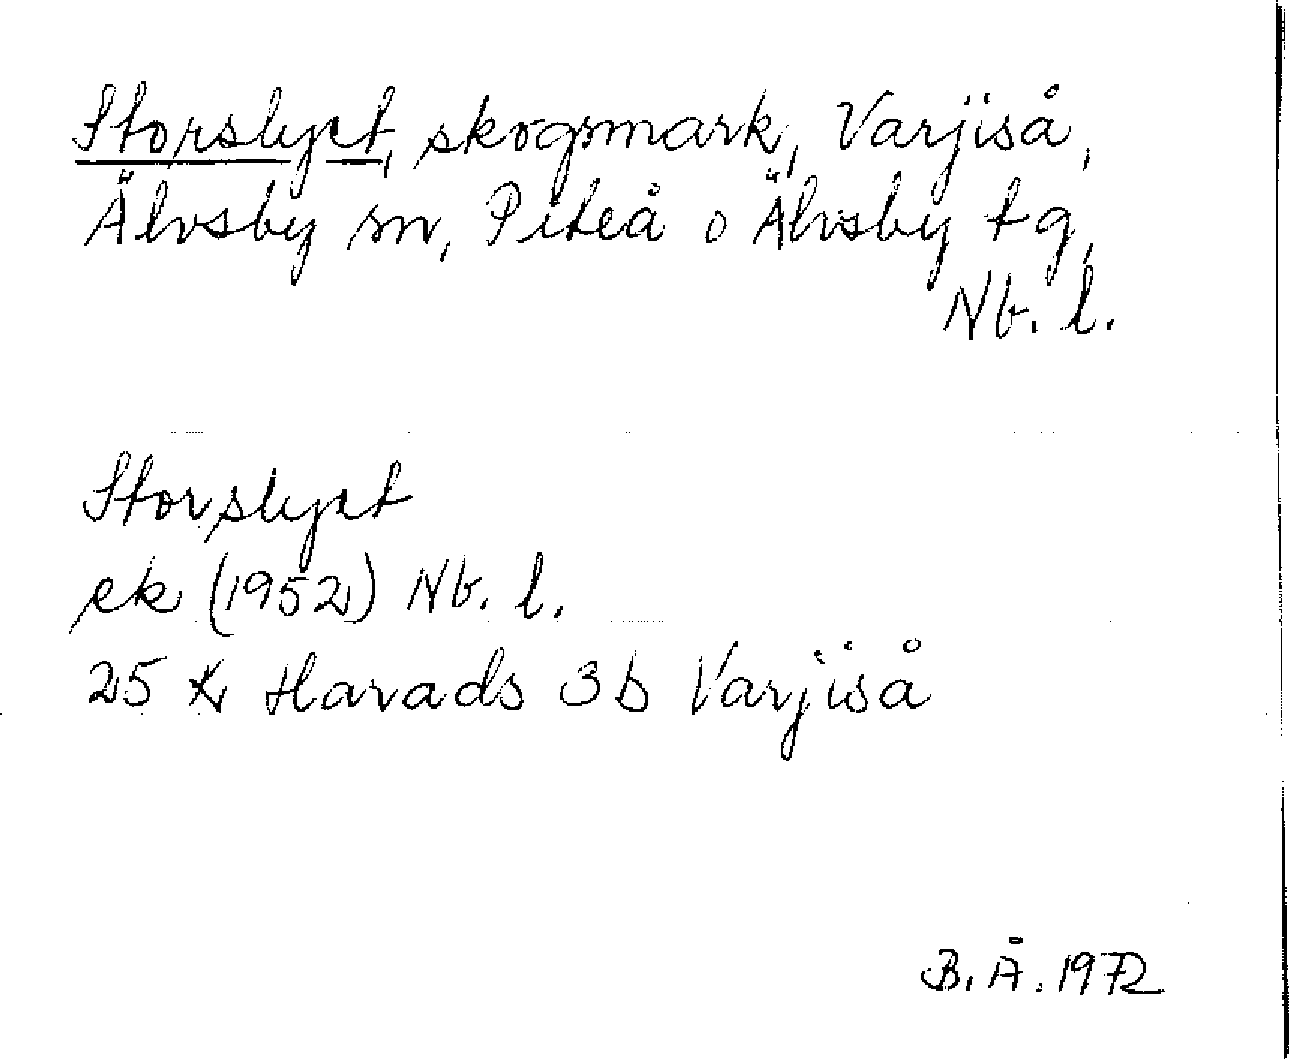 Storslyet, skogsmark, Varjiså,
Älvsby sn, Piteå o Älvsby tg,
Nb. l.
Storslyet
ek (1952) Nb. l.
25 K Harads 3b Varjiså
B. Å. 1972